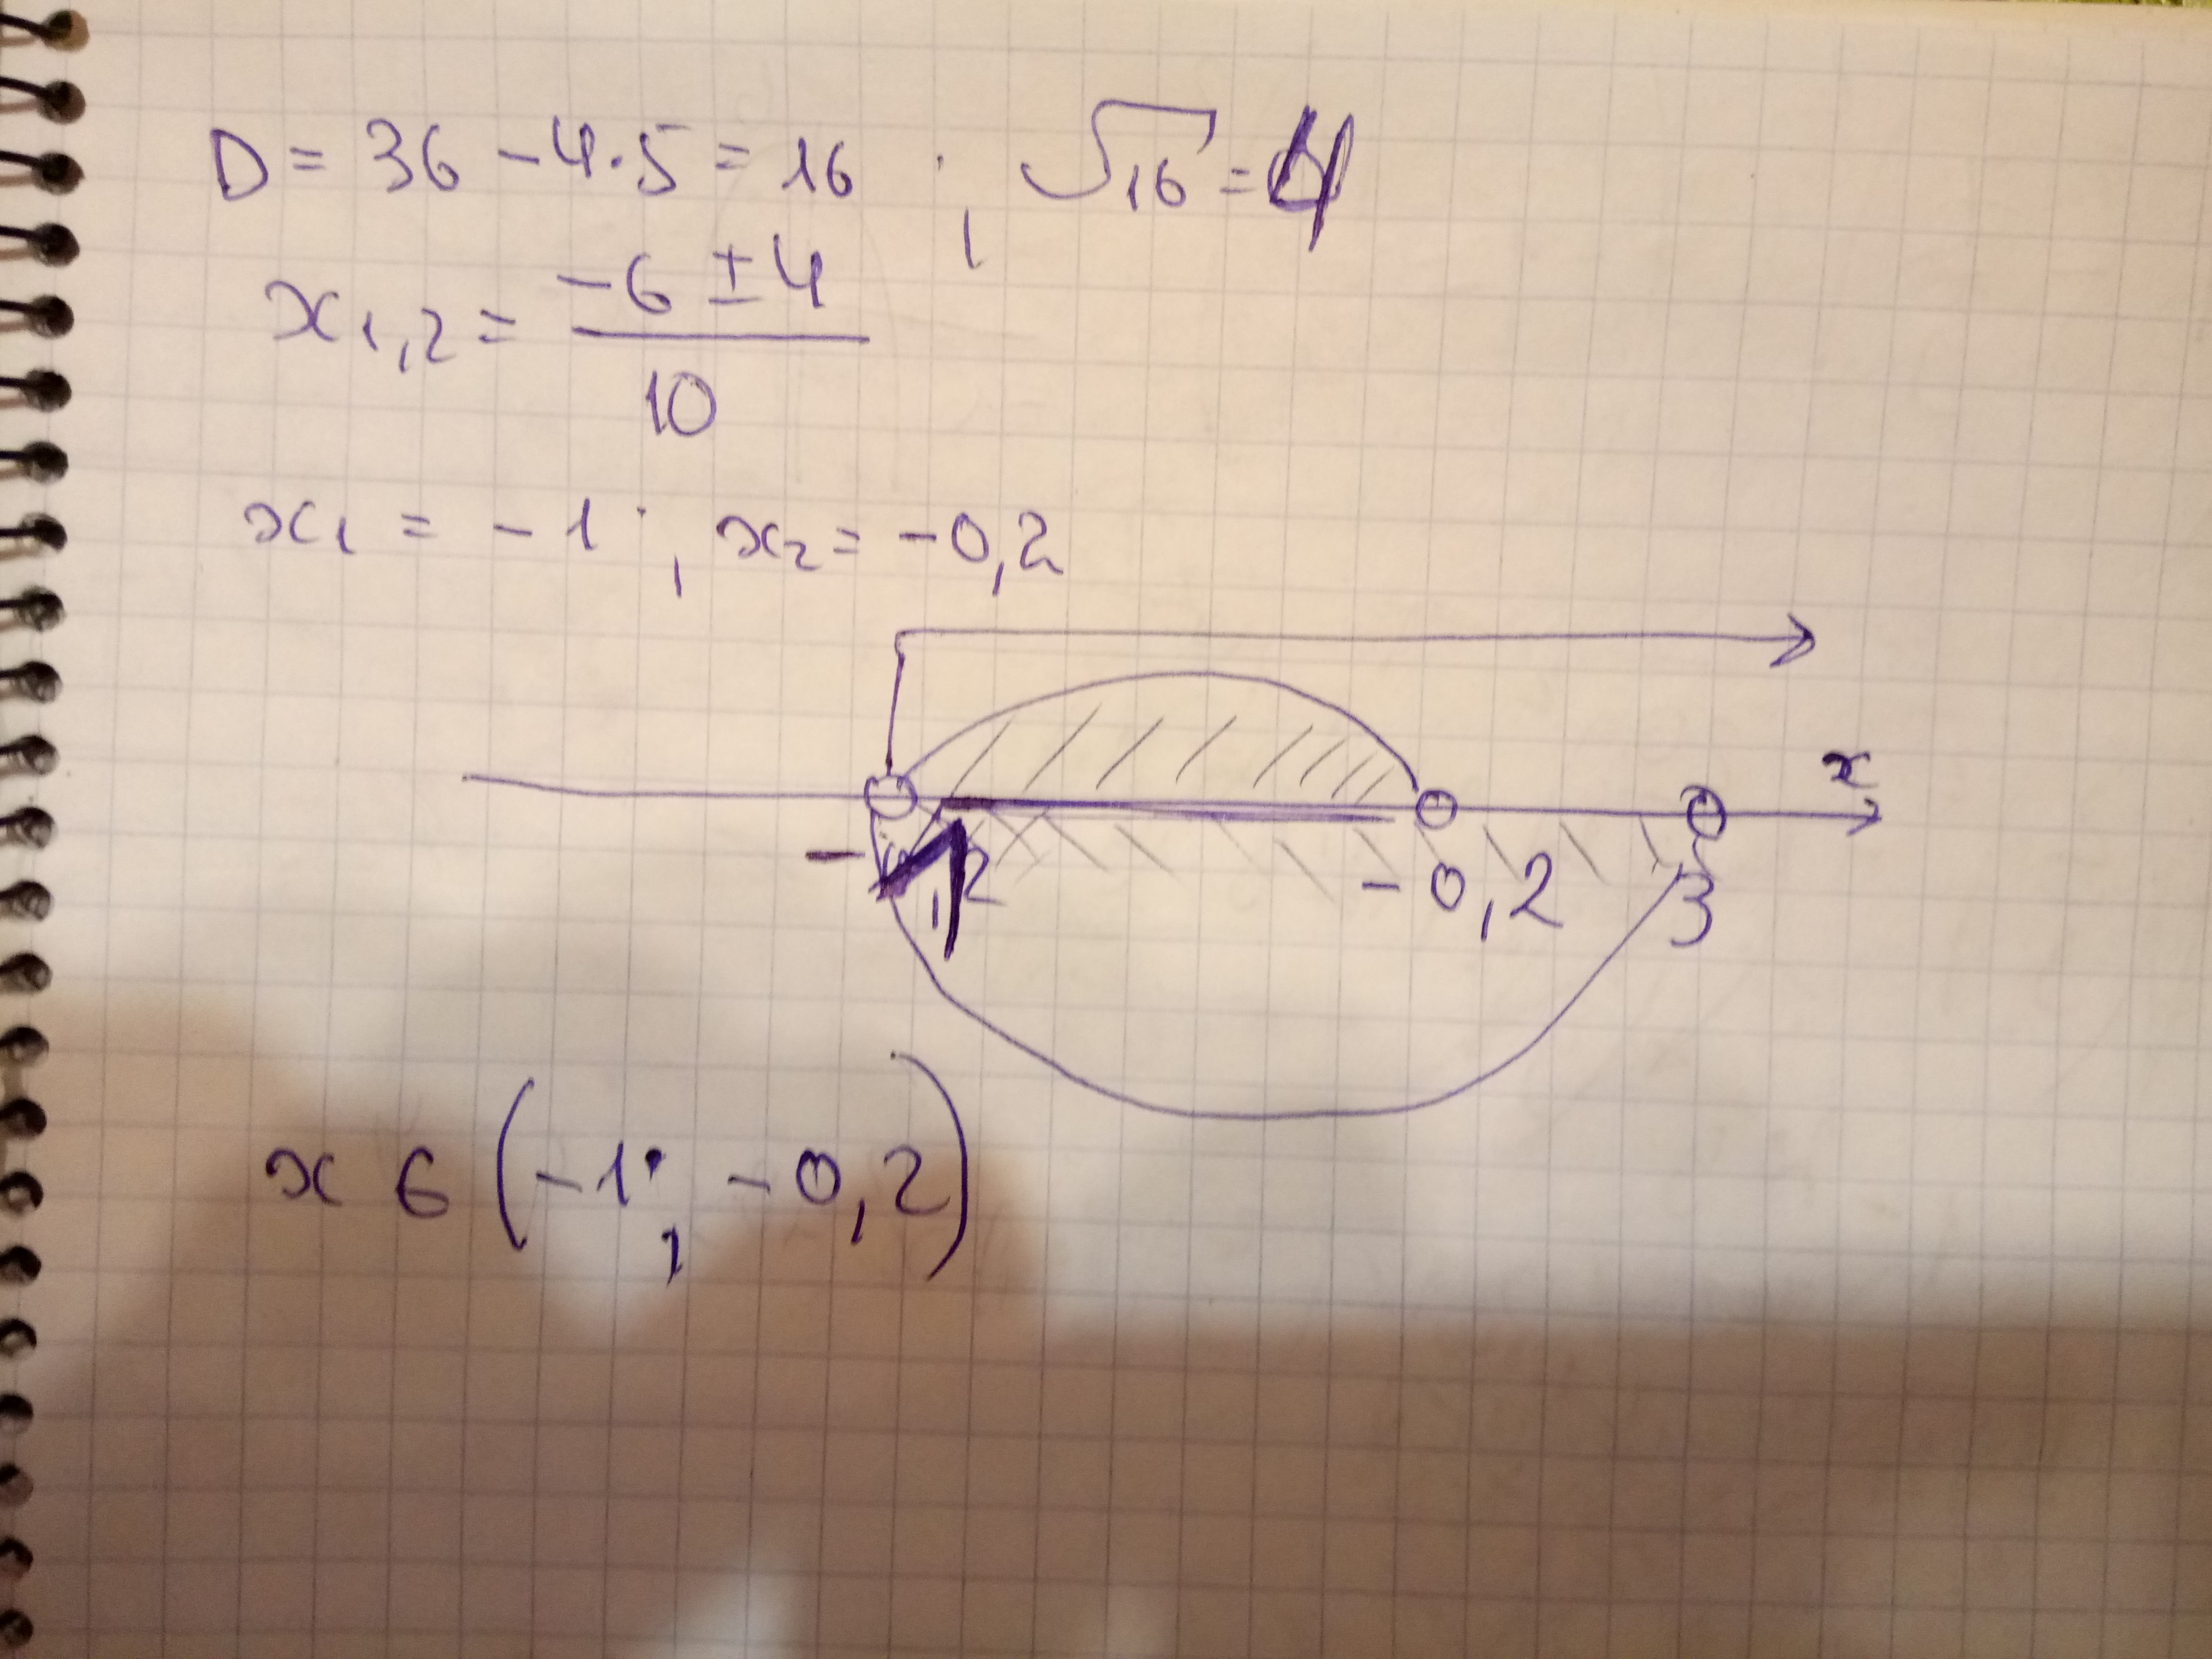 D = 36 - 4·5 = 16 ; √16 = 4
x1,2 = (-6 ± 4) / 10
x1 = -1 ; x2 = -0,2
x
-1 -0,2 3
x ∈ (-1; -0,2)